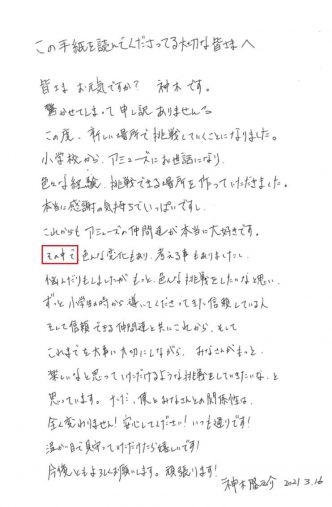 この手紙を読んでくださってる大切な皆さまへ
皆さま お元気ですか？ 神木です。
驚かせてしまって申し訳ありません。
この度、新しい場所で挑戦していくことになりました。
小学校から、アミューズにお世話になり、
色々な経験、挑戦できる場所を作っていただきました。
本当に感謝の気持ちでいっぱいですし、
これからも アミューズの仲間達が本当に大好きです。
その中で 色んな変化もあり、考える事もありました。
悩んだりもしましたが もっと、色んな挑戦をしたいなと思い、
ずっと小学生の時から導いてくださってきた信頼している人
そして信頼できる仲間達と共にこれから、そして
これまでを大事に大切にしながら、みなさんがもっと、
楽しいなと思っていただけるような挑戦をしていきたいな、と
思っています。ただ、僕とみなさんとの関係性は、
全く変わりません！安心してください！いつも通りです！
温かい目で見守っていただけたら嬉しいです！
今後ともよろしくお願いします。頑張ります！
神木隆之介 2021.3.16